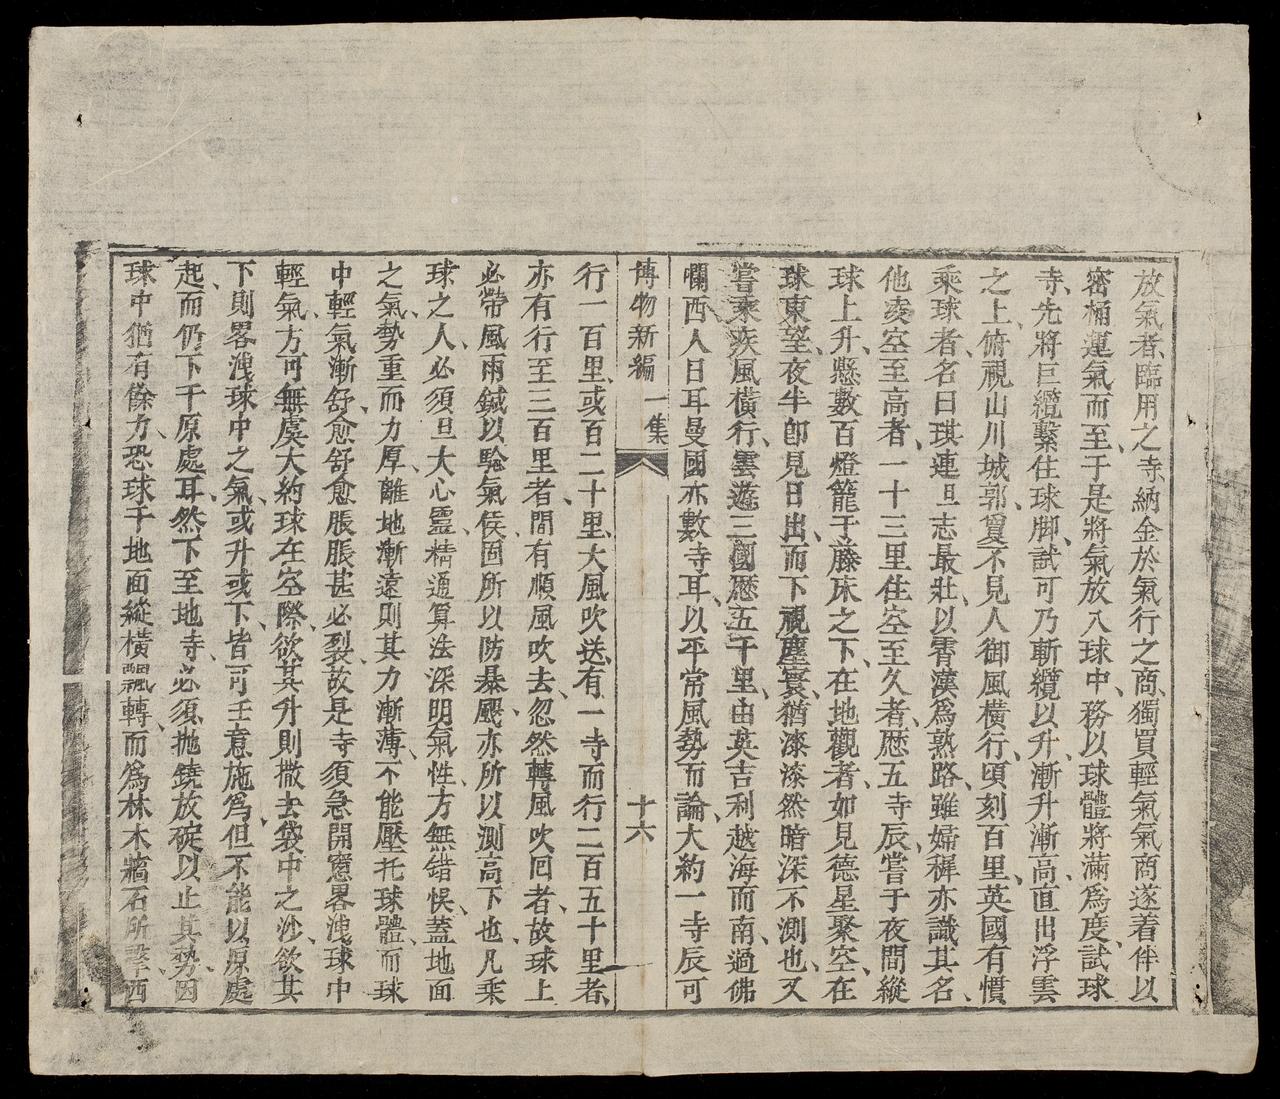 放氣者臨用之寺、納金於氣行之商、獨買輕氣氣商遂着伴以
密桶運氣而至、于是將氣放入球中、務以球體將滿爲度、試球
寺、先將巨纜繫住球脚、試可乃斬纜以升、漸升漸高、直出浮雲
之上、俯視山川城郭、寬不見人御風橫行、頃刻百里、英國有慣
乘球者、名曰琪連旦志最壯、以霄漢爲熟路、雖婦穉亦識其名、
他凌空至高者、一十三里住空至久者、歷五寺辰、嘗于夜間縱
球上升、懸數百燈籠于藤床之下、在地觀者、如見德星聚空、在
球東望、夜半卽見日出、而下視塵寰、猶漆漆然暗深不測也、又
嘗乘疾風橫行、雲遊三國、歷五千里、由英吉利越海而南、過佛
囒西人日耳曼國亦數寺耳、以平常風勢而論、大約一寺辰可
博物新編 一集 十六
行一百里、或百二十里、大風吹送、有一寺而行二百五十里者、
亦有行至三百里者、間有順風吹去、忽然轉風吹囘者、故球上
必帶風雨鍼以騐氣候、固所以防暴颶、亦所以測高下也、凡乘
球之人、必須旦大心靈、精通算法深明氣性、方無錯悞、蓋地面
之氣、勢重而力厚、離地漸遠則其力漸薄、不能壓托球體、而球
中輕氣漸舒、愈舒愈脹脹甚必裂、故是寺須急開窻畧洩球中
輕氣、方可無虞大約球在空際、欲其升則撒去袋中之沙、欲其
下則畧洩球中之氣、或升或下、皆可任意施爲、但不能以原處
起、而仍下于原處耳、然下至地寺、必須拋鐃放碇以止其勢、因
球中猶有餘力、恐球于地面縱橫飄轉、而爲林木牆石所擊、西